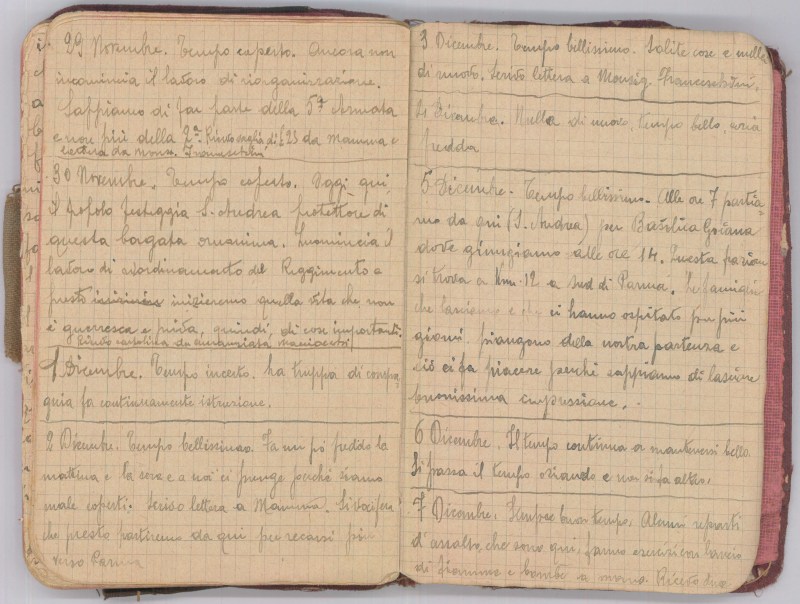 29 Novembre. Tempo coperto. Ancora non
incomincia il lavoro di riorganizzazione.
Sappiamo di far parte della 5ª Armata
e non più della 2ª. Ricevo vaglia di £ 25 da Mamma e
lettera da mons. Franceschini
30 Novembre. Tempo coperto. Oggi qui
il popolo festeggia S. Andrea protettore di
questa borgata omonima. Incomincia il
lavoro di riordinamento del Reggimento e
presto inizieremo quella vita che non
è guerresca e priva, quindi, di cose importanti.
Ricevo cartolina da
1 Dicembre. Tempo incerto. La truppa di compa
gnia fa continuamente istruzione.
2 Dicembre. Tempo bellissimo. Fa un pò freddo la
mattina e la sera e a noi ci punge perchè siamo
male coperti. Scrivo lettera a Mamma. Si vocifera
che presto partiremo da qui per recarci più
verso Parma
3 Dicembre. Tempo bellissimo. Solite cose e nulla
di nuovo. Scrivo lettera a Monsig. Franceschini.
4 Dicembre. Nulla di nuovo, tempo bello, aria
fredda
5 Dicembre. Tempo bellissimo. Alle ore 7 partia-
mo da qui (S. Andrea) per Basilica Goiana
dove giungiamo alle ore 14. Questa frazione
si trova a Km. 12 a sud di Parma. Le famiglie
che lasciamo e che ci hanno ospitato per più
giorni piangono della nostra partenza e
ciò ci fa piacere perchè sappiamo di lasciare
buonissima impressione.
6 Dicembre. Il tempo continua a mantenersi bello.
Si passa il tempo oziando e non si fa altro.
7 Dicembre. Sempre buon tempo. Alcuni reparti
d'assalto, che sono qui, fanno esercizi con lancia
di fiamme e bombe a mano. Ricevo due